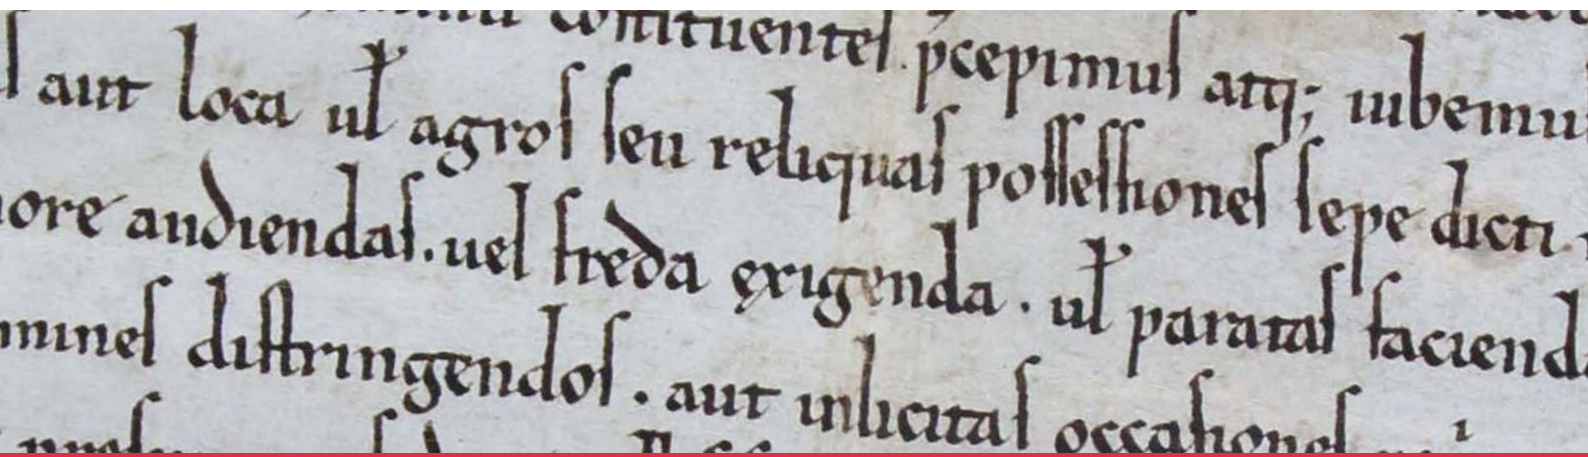 constituentes pcepimus atq; iubemus
aut loca ul agros seu reliquas possessiones sepe dicti
audiendas. uel freda exigenda. ul paratas faciend
distringendos. aut inlicitas occasiones